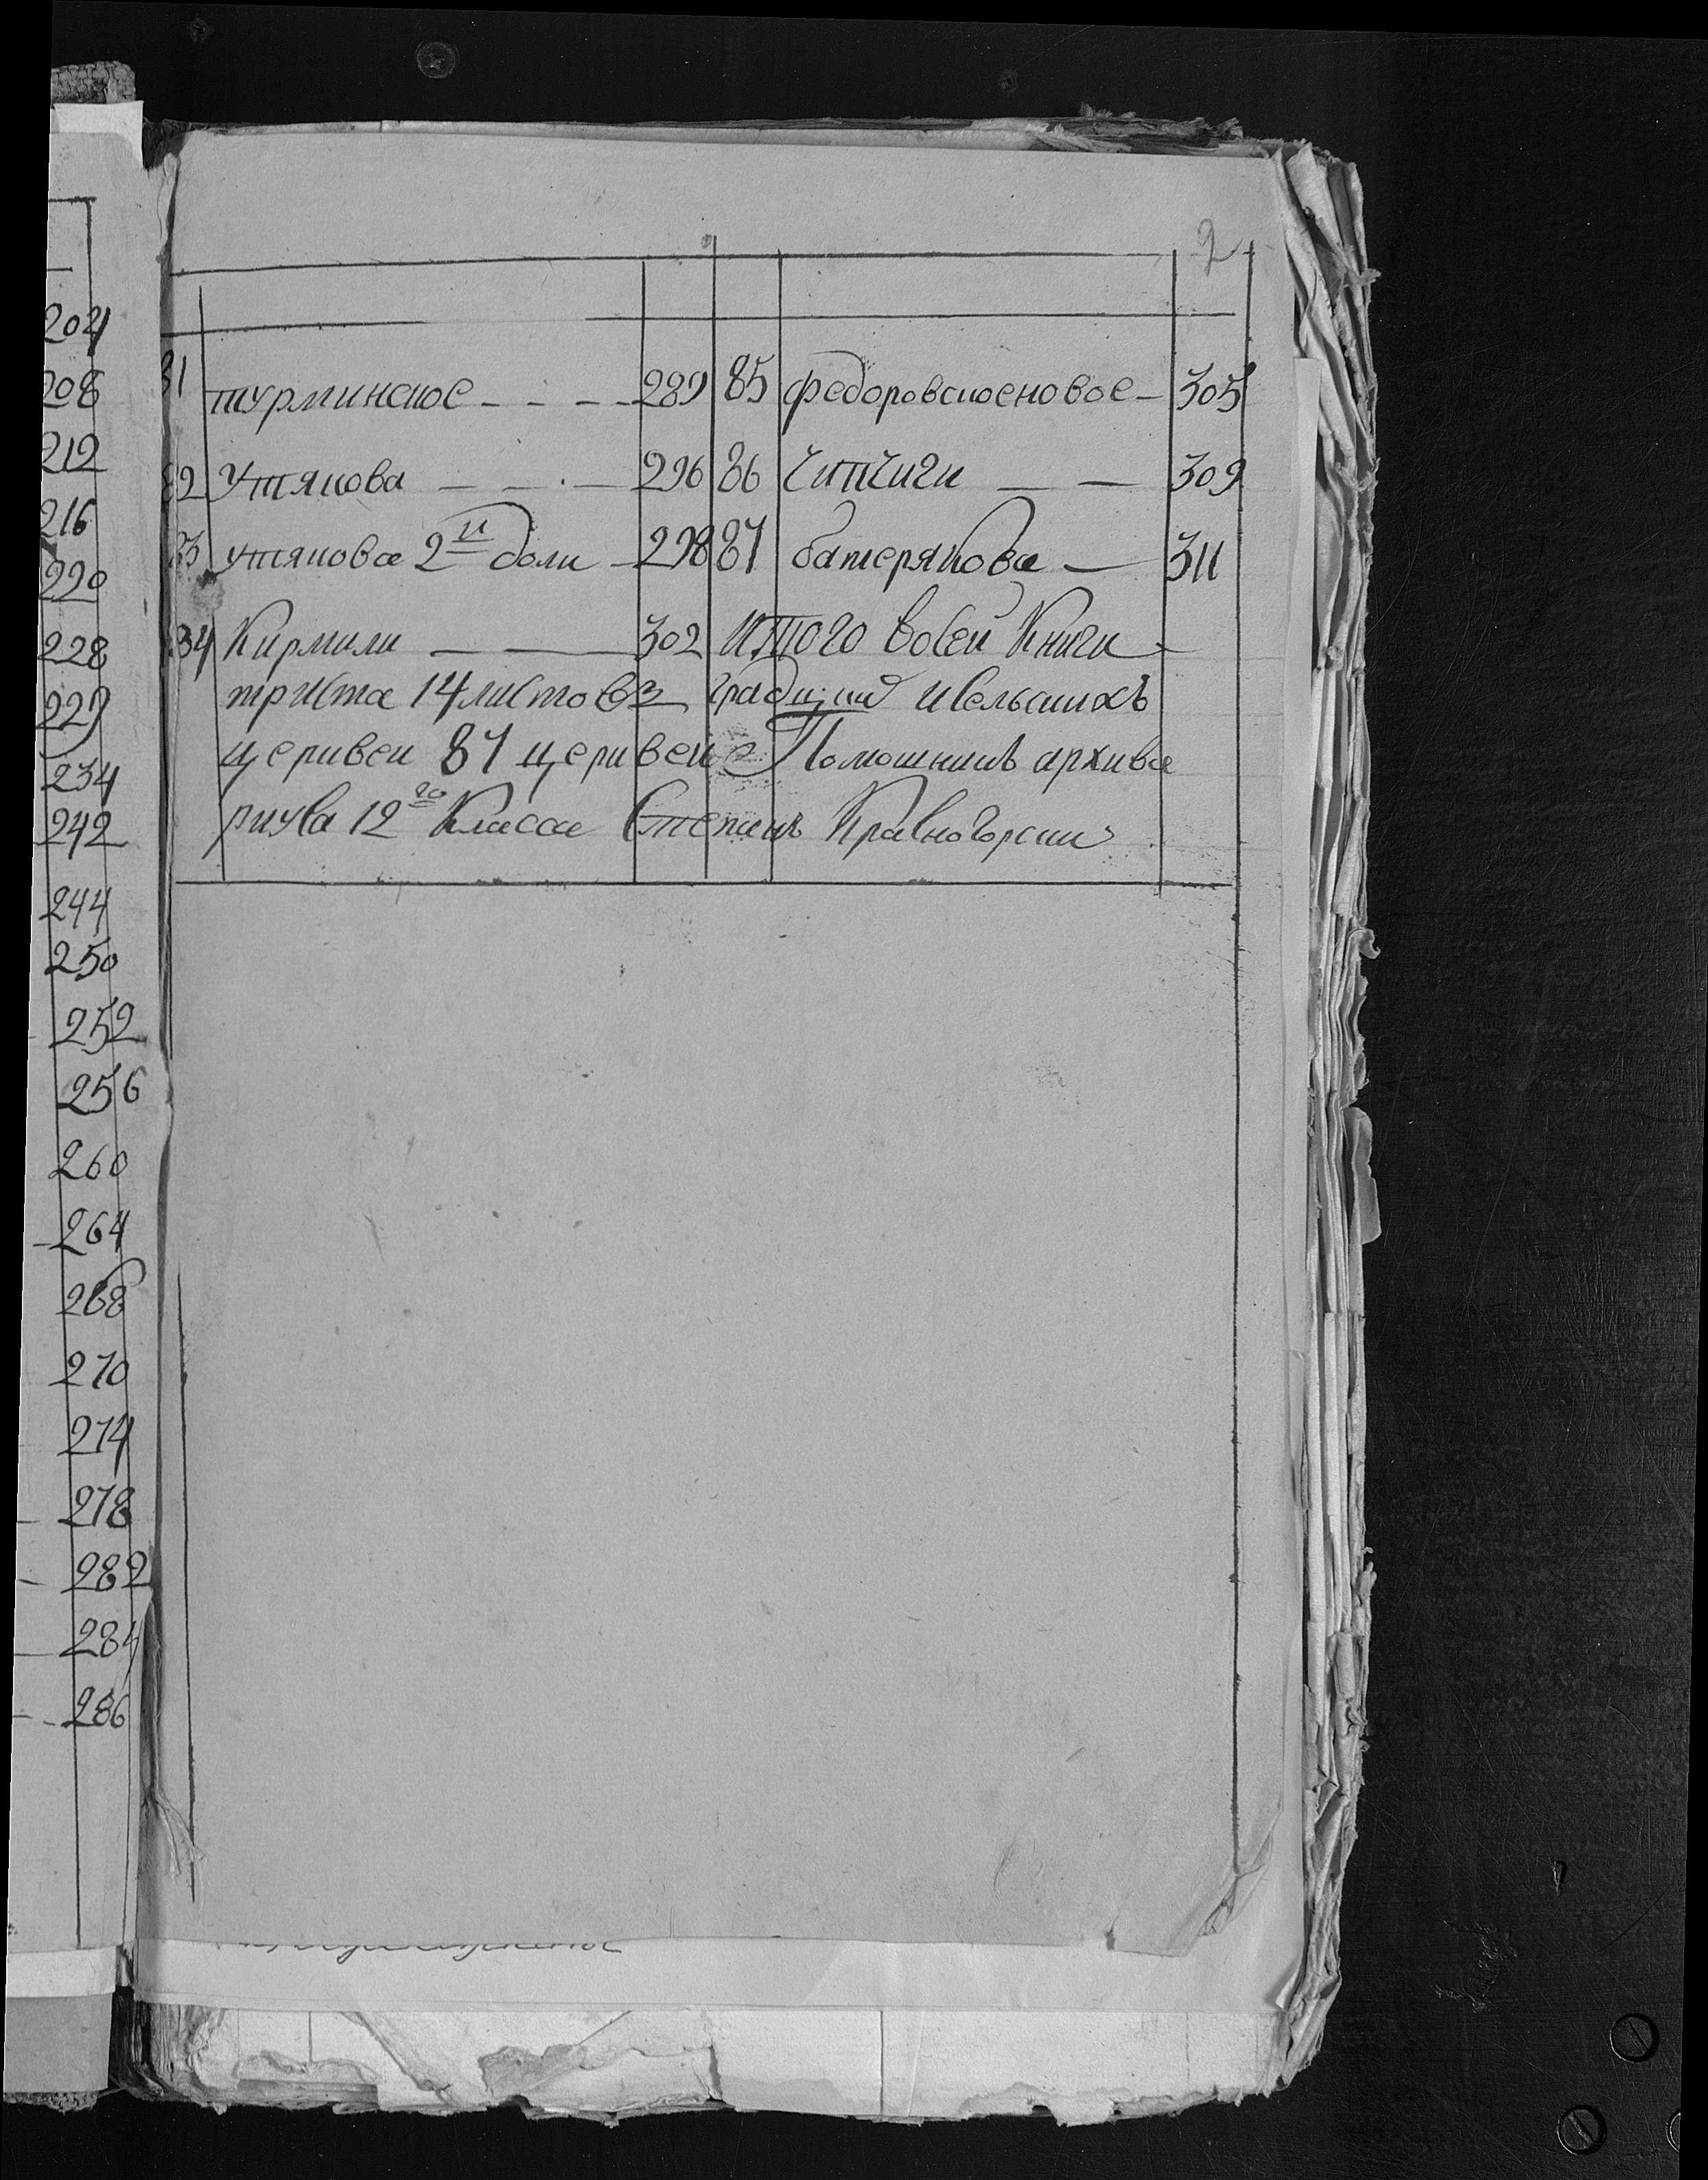 204
208
212
216
220
228
229
234
242
244
250
252
256
260
264
268
270
274
278
282
284
286
2
81 турминское - - - - 289 85 федоровскоеновое - 305
82 Утякова — — . — 296 86 Чипчиги — — 309
83 утякова 2й доли - 298 87 батерякова — 311
84 Кирмили — — 302 Итого вовсей Книги
триста 14 листовъ градцкия исельскихъ
церквеи 87 церквеи Помошникъ архива
риуса 12го Класса Степанъ Красногорски